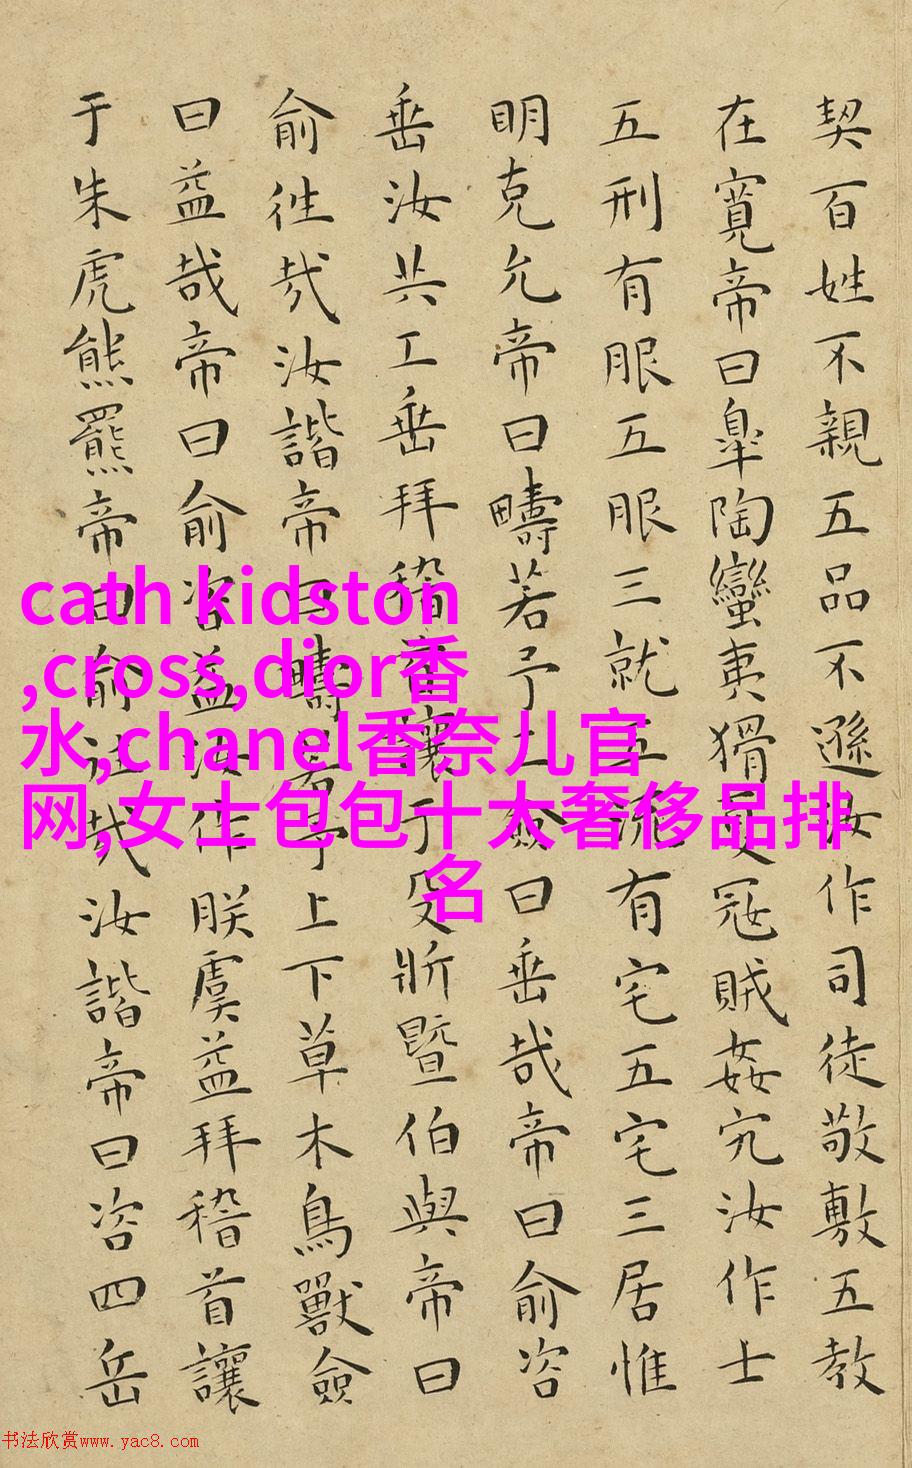 契百姓不親五品不遜汝作司徒敬敷五教
在寬帝曰皐陶蠻夷猾夏寇賊姦宄汝作士
五刑有服五服三就五流有宅五宅三居惟
明克允帝曰疇若予工僉曰垂哉帝曰俞咨
垂汝共工垂拜稽首讓于殳斨暨伯與帝曰
俞往哉汝諧帝曰疇若予上下草木鳥獸僉
曰益哉帝曰俞咨益汝作朕虞益拜稽首讓
于朱虎熊羆帝曰俞往哉汝諧帝曰咨四岳
cath kidston
,cross,dior香
水,chanel香奈儿官
网,女士包包十大奢侈品排
名
书法欣赏www.yac8.com